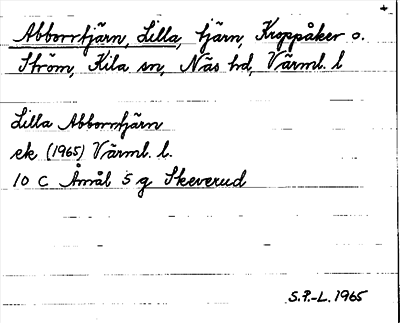 Abborrtjärn, Lilla, tjärn, Kroppåker o.
Ström, Kila sn, Näs hd, Värml. l
Lilla Abborrtjärn
ek (1965) Värml. l.
10 C Åmål 5 g Skeverud
S.P.-L. 1965